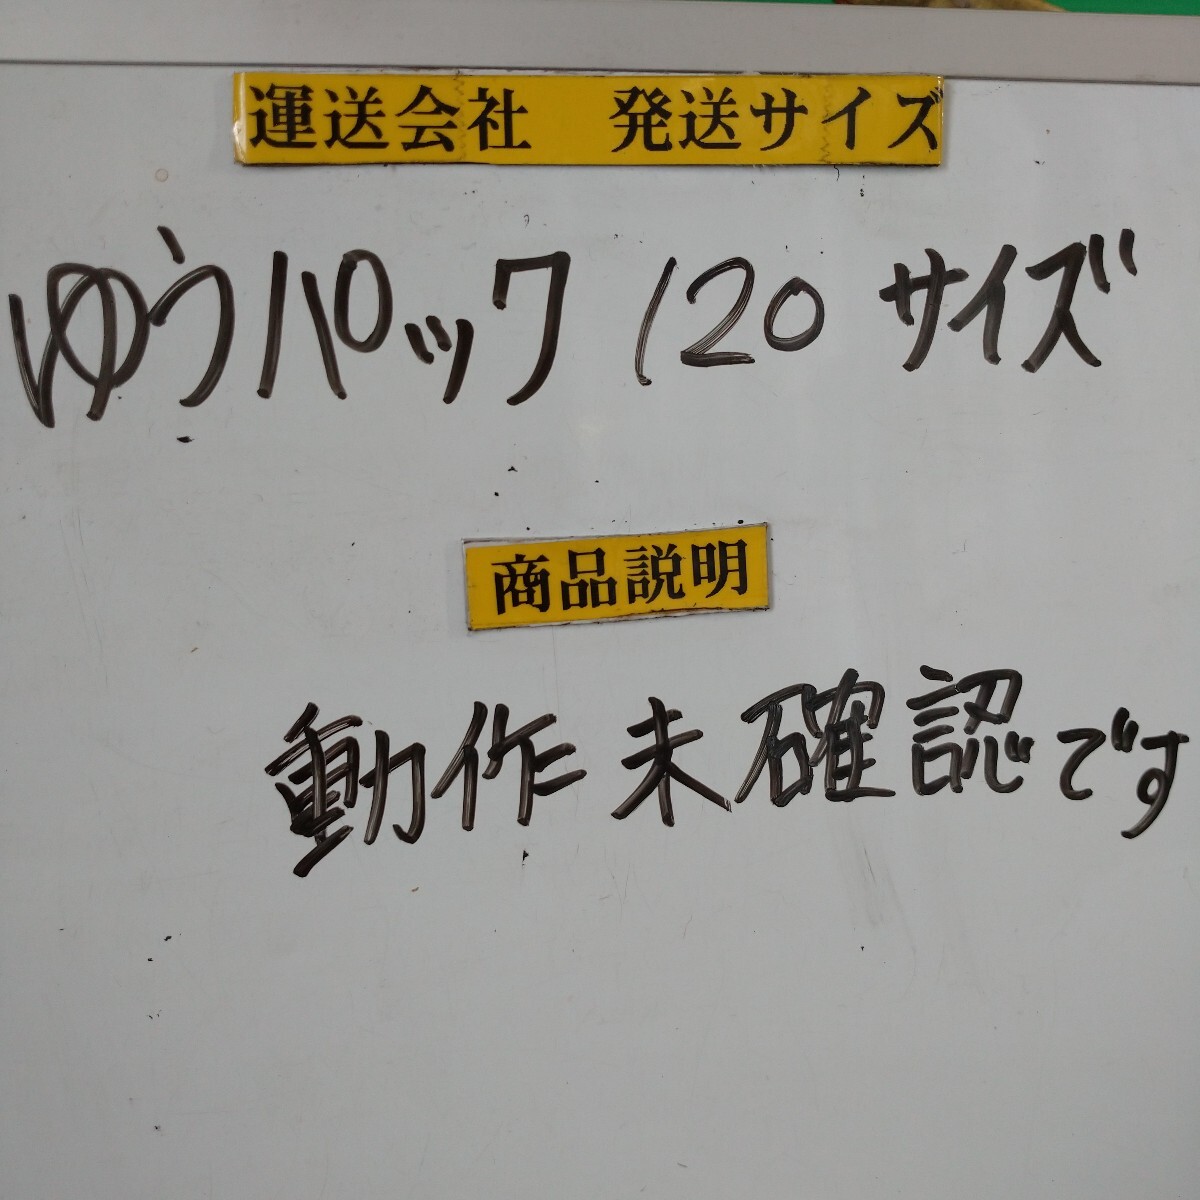 運送会社　発送サイズ
ゆうパック 120 サイズ
商品説明
動作未確認です